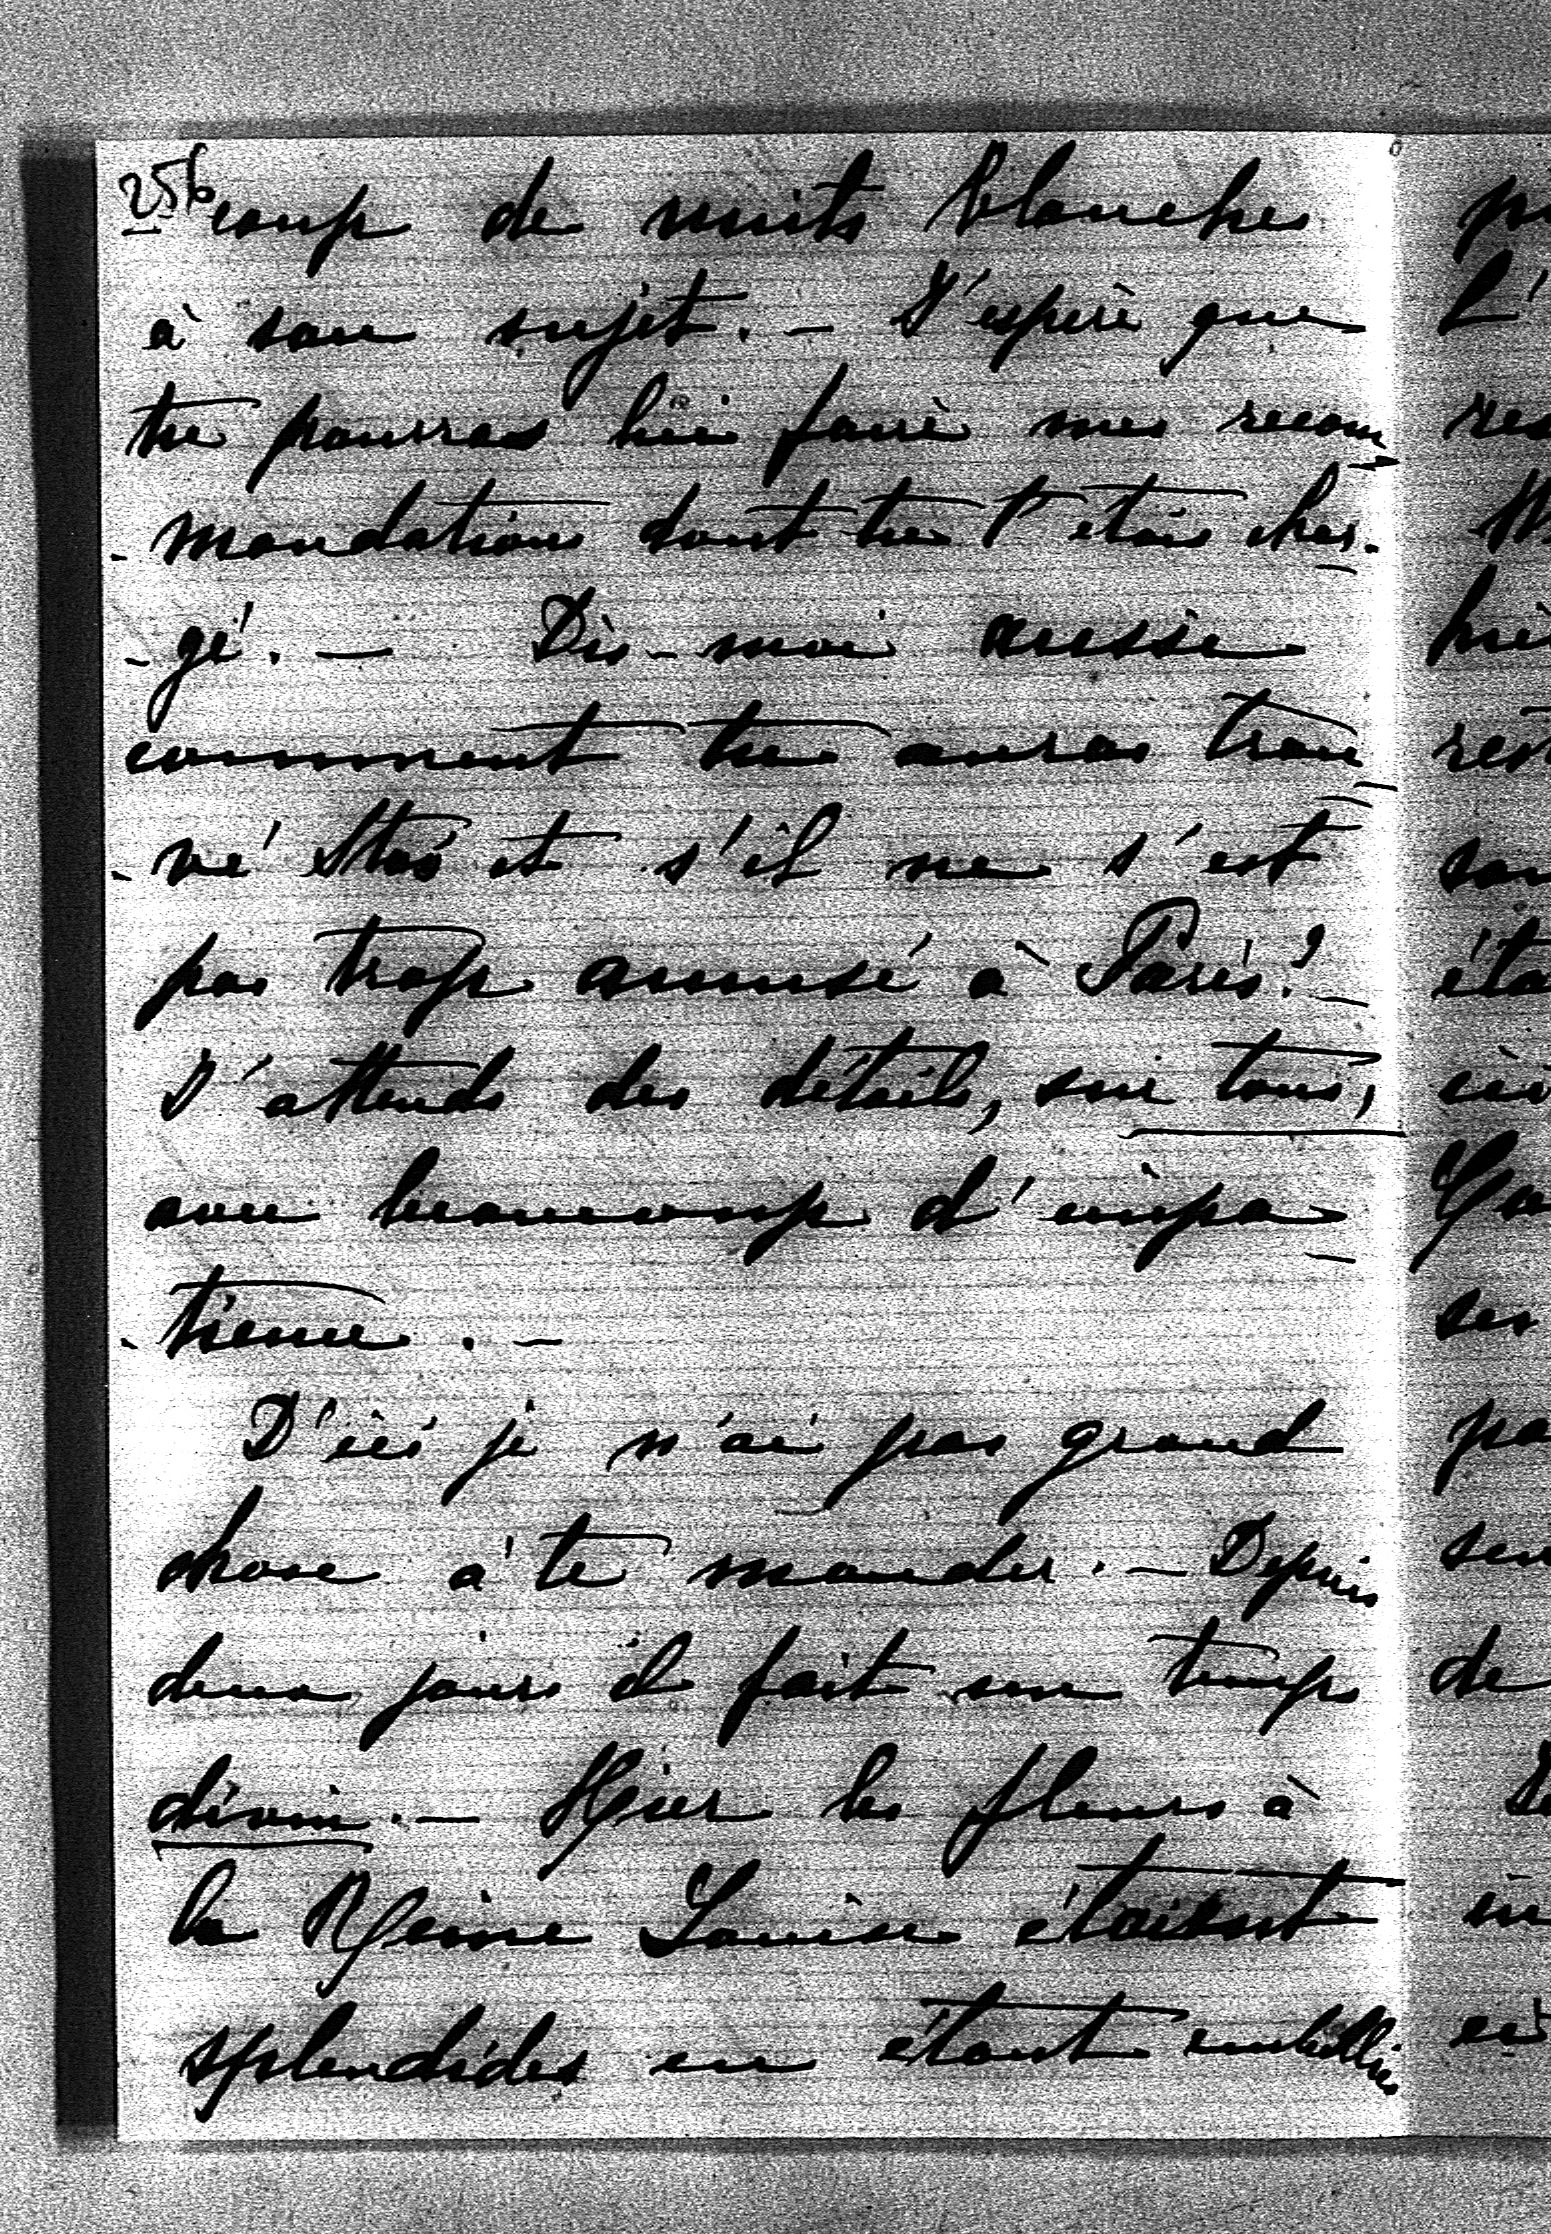 256
coup de nuits blanches
à son sujet. - J'espère que
tu pourras lui faire mes recom
- mandations dont tu t'étais char-
- gé. - Dis-moi aussi
comment tu auras trou
- vé Stas et s'il ne s'est
pas trop amusé à Paris? -
J'attends des détails, sur tous,
avec beaucoup d'impa-
- tience. -
D'ici je n'ai pas grand
chose à te mander. - Depuis
deux jours il fait un temps
divin. - Hier les fleurs à
la Reine Louise étaient
splendides en étant embellies